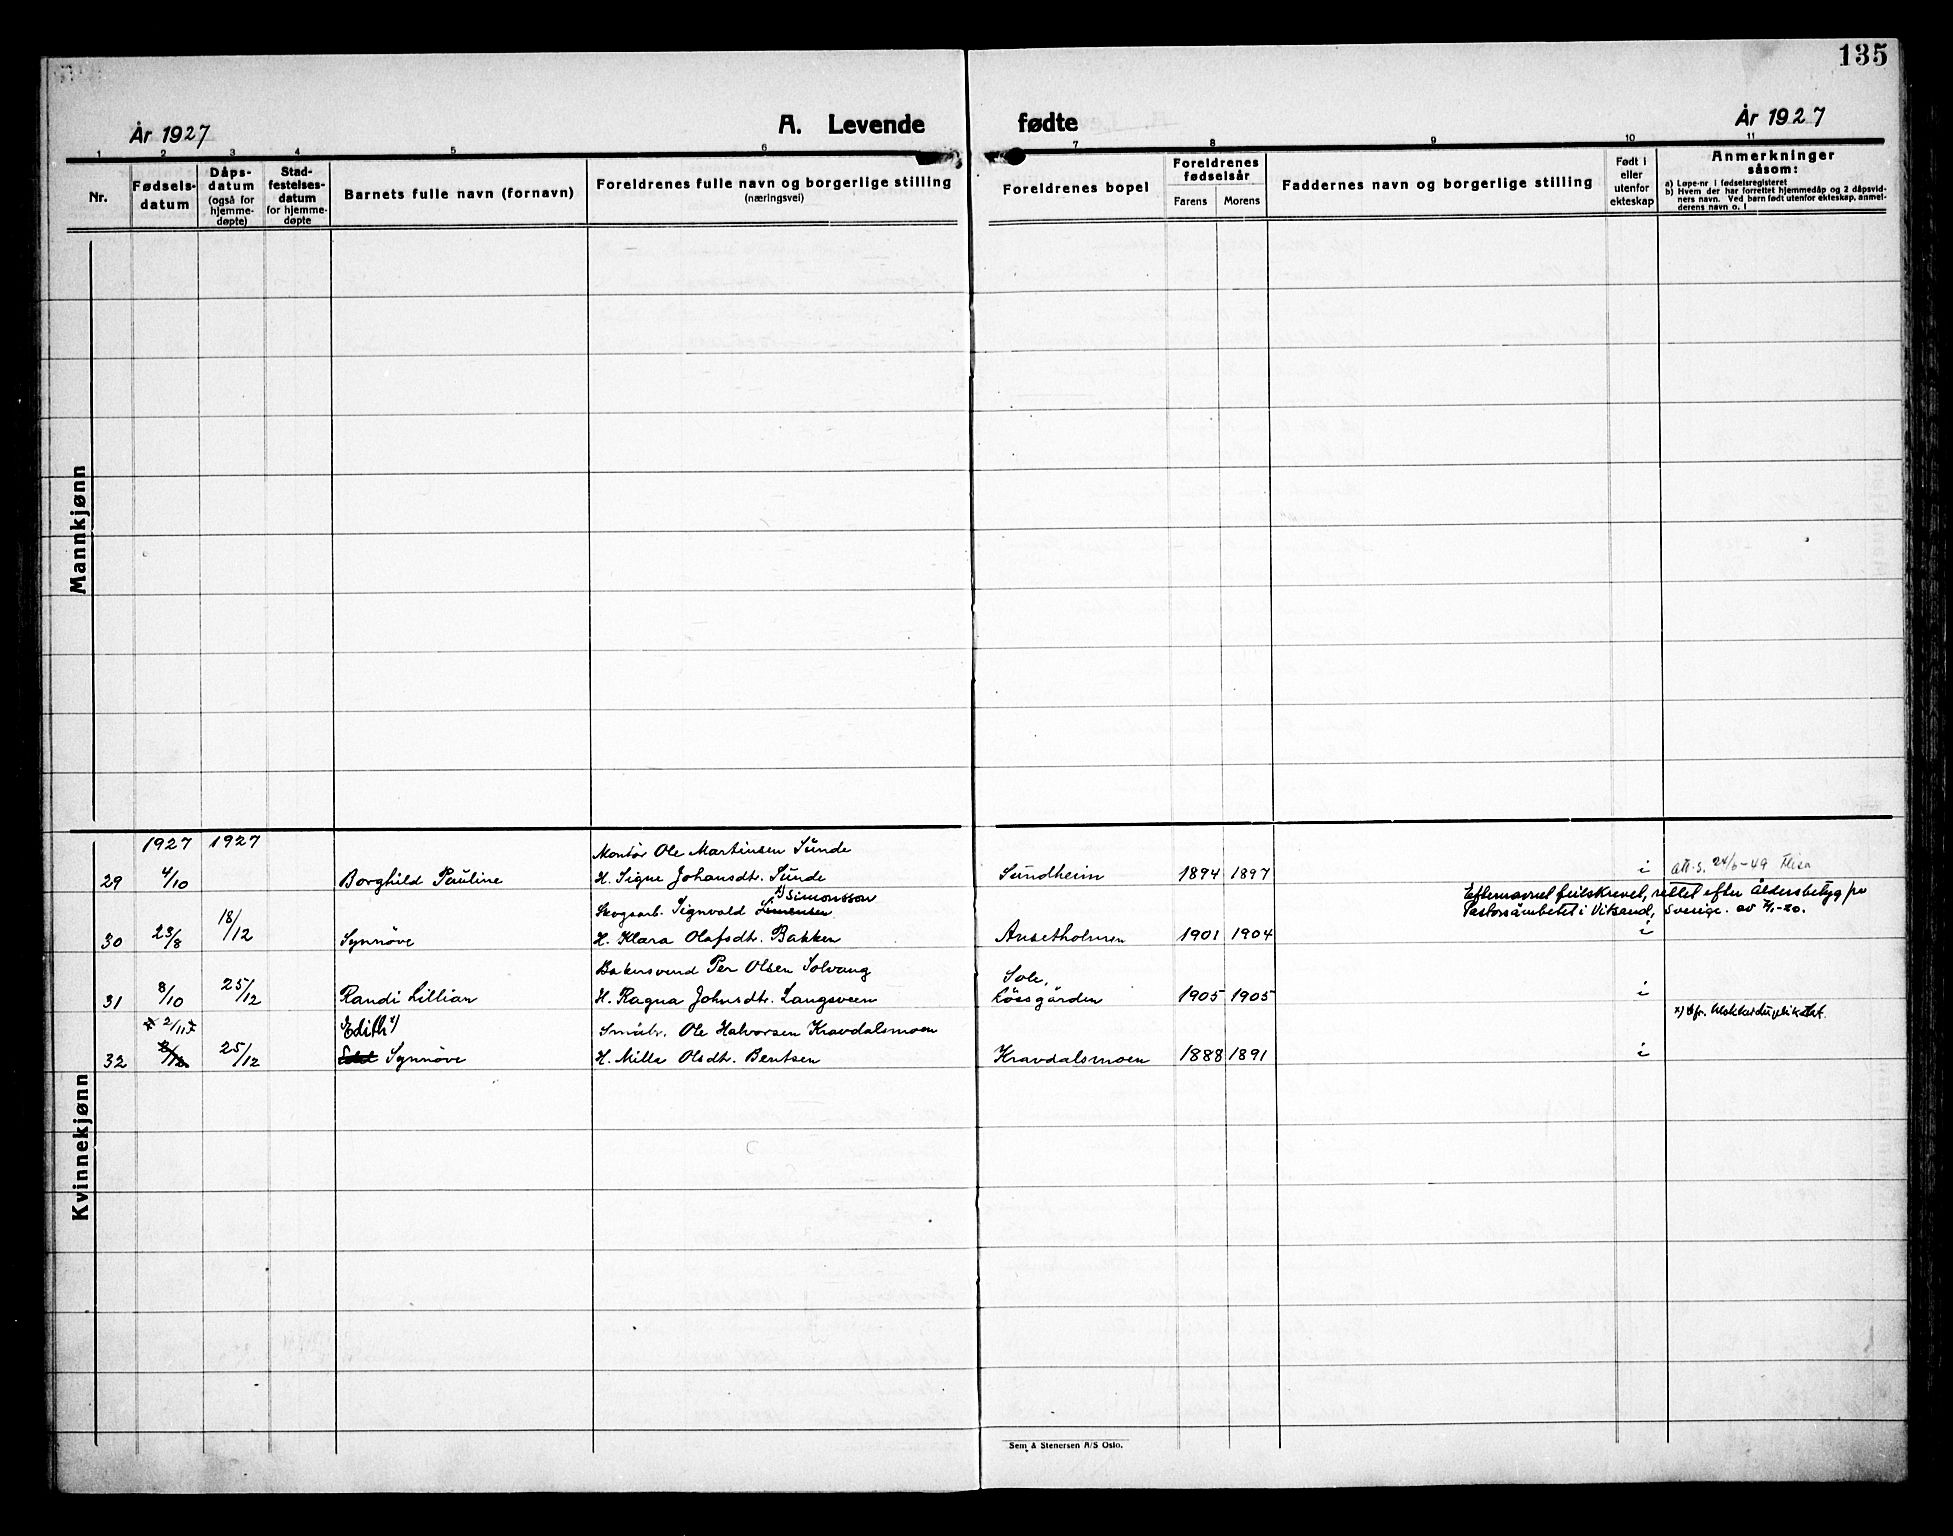 135
År 1927
A. Levende fødte
År 1927
1 2 3 4 5 6 7 8 9 10 11
Nr.
Fødsels-
datum
Dåps-
datum
(også for
hjemme-
døpte)
Stad-
festelses-
datum
for hjemme-
døpte
Barnets fulle navn (fornavn)
Foreldrenes fulle navn og borgerlige stilling
(næringsvei)
Foreldrenes bopel
Foreldrenes
fødselsår
Farens Morens
Faddernes navn og borgerlige stilling
Født i
eller
utenfor
ekteskap
Anmerkninger
såsom:
a) Løpe-nr i fødselsregisteret
b) Hvem der har forrettet hjemmedåp og 2 dåpsvid-
ners navn. Ved barn født utenfor ekteskap, anmel-
derens navn o. l
Mannkjønn
Kvinnekjønn
1927 1927
Montør Ole Martinsen Sunde
29 4/10 Borghild Pauline H. Signe Johansdtr. Sunde Sundheim 1894 1897 i att. s. 24/6-49 Flisa
1) Simonsson
Efternavnet feilskrevet, rettet efter åldersbetyg fra
Skogsarb. Signvald Simensen
Pastorsämbetet i Vitsand, Sverige.
30 23/8 18/12 Synnöve H. Klara Olafsdtr. Bakken 1901 1904 i
Bakersvend Per Olsen Solvang Sole,
31 8/10 25/12 Randi Lillian H. Ragna Johnsdtr. Langsveen 1905 1905 i
x 2/11 x Edith x) Småbr. Ole Halvorsen Kravdalsmoen
32 25/12 Synnöve H. Milla Olsdtr. Bentsen Kravdalsmoen 1888 1891 i
Sem & Stenersen A/S Oslo.